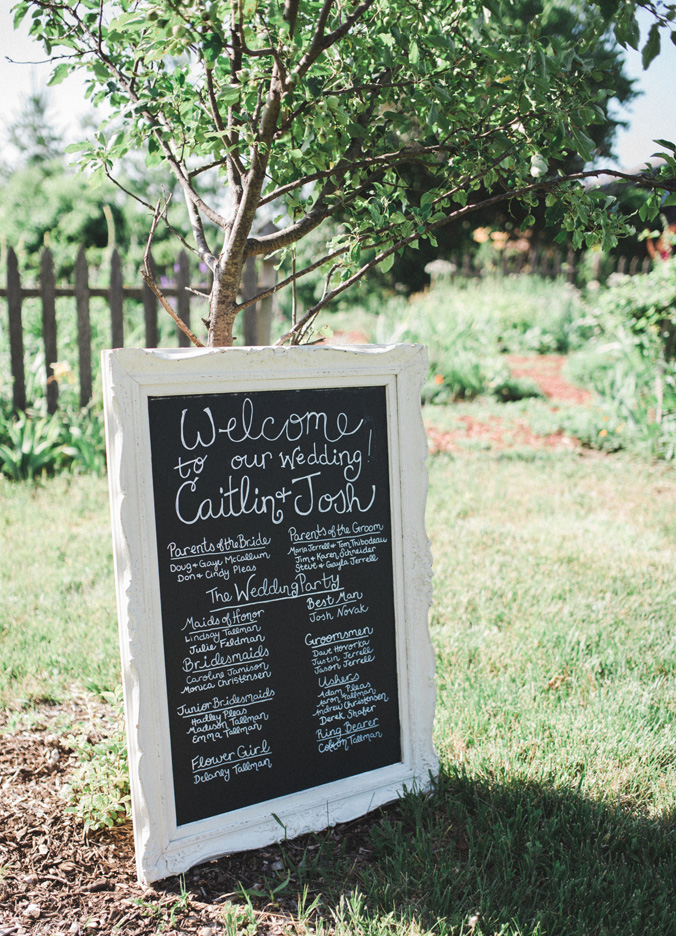 Welcome
to our wedding!
Caitlin + Josh
Parents of the Bride
Doug + Gaye McCallum
Don + Cindy Pleas
Parents of the Groom
Maria Jerrell + Tom Thibodeau
Jim + Karen Schneider
Steve + Gayla Jerrell
The Wedding Party
Maids of Honor
Lindsay Tallman
Julie Feldman
Bridesmaids
Caroline Jamison
Monica Christensen
Junior Bridesmaids
Hadley Pleas
Madison Tallman
Emma Tallman
Flower Girl
Delaney Tallman
Best Man
Josh Novak
Groomsmen
Dave Hovorka
Justin Jerrell
Jason Jerrell
Ushers
Adam Pleas
Aaron Tallman
Andrew Christensen
Derek Shafer
Ring Bearer
Colton Tallman